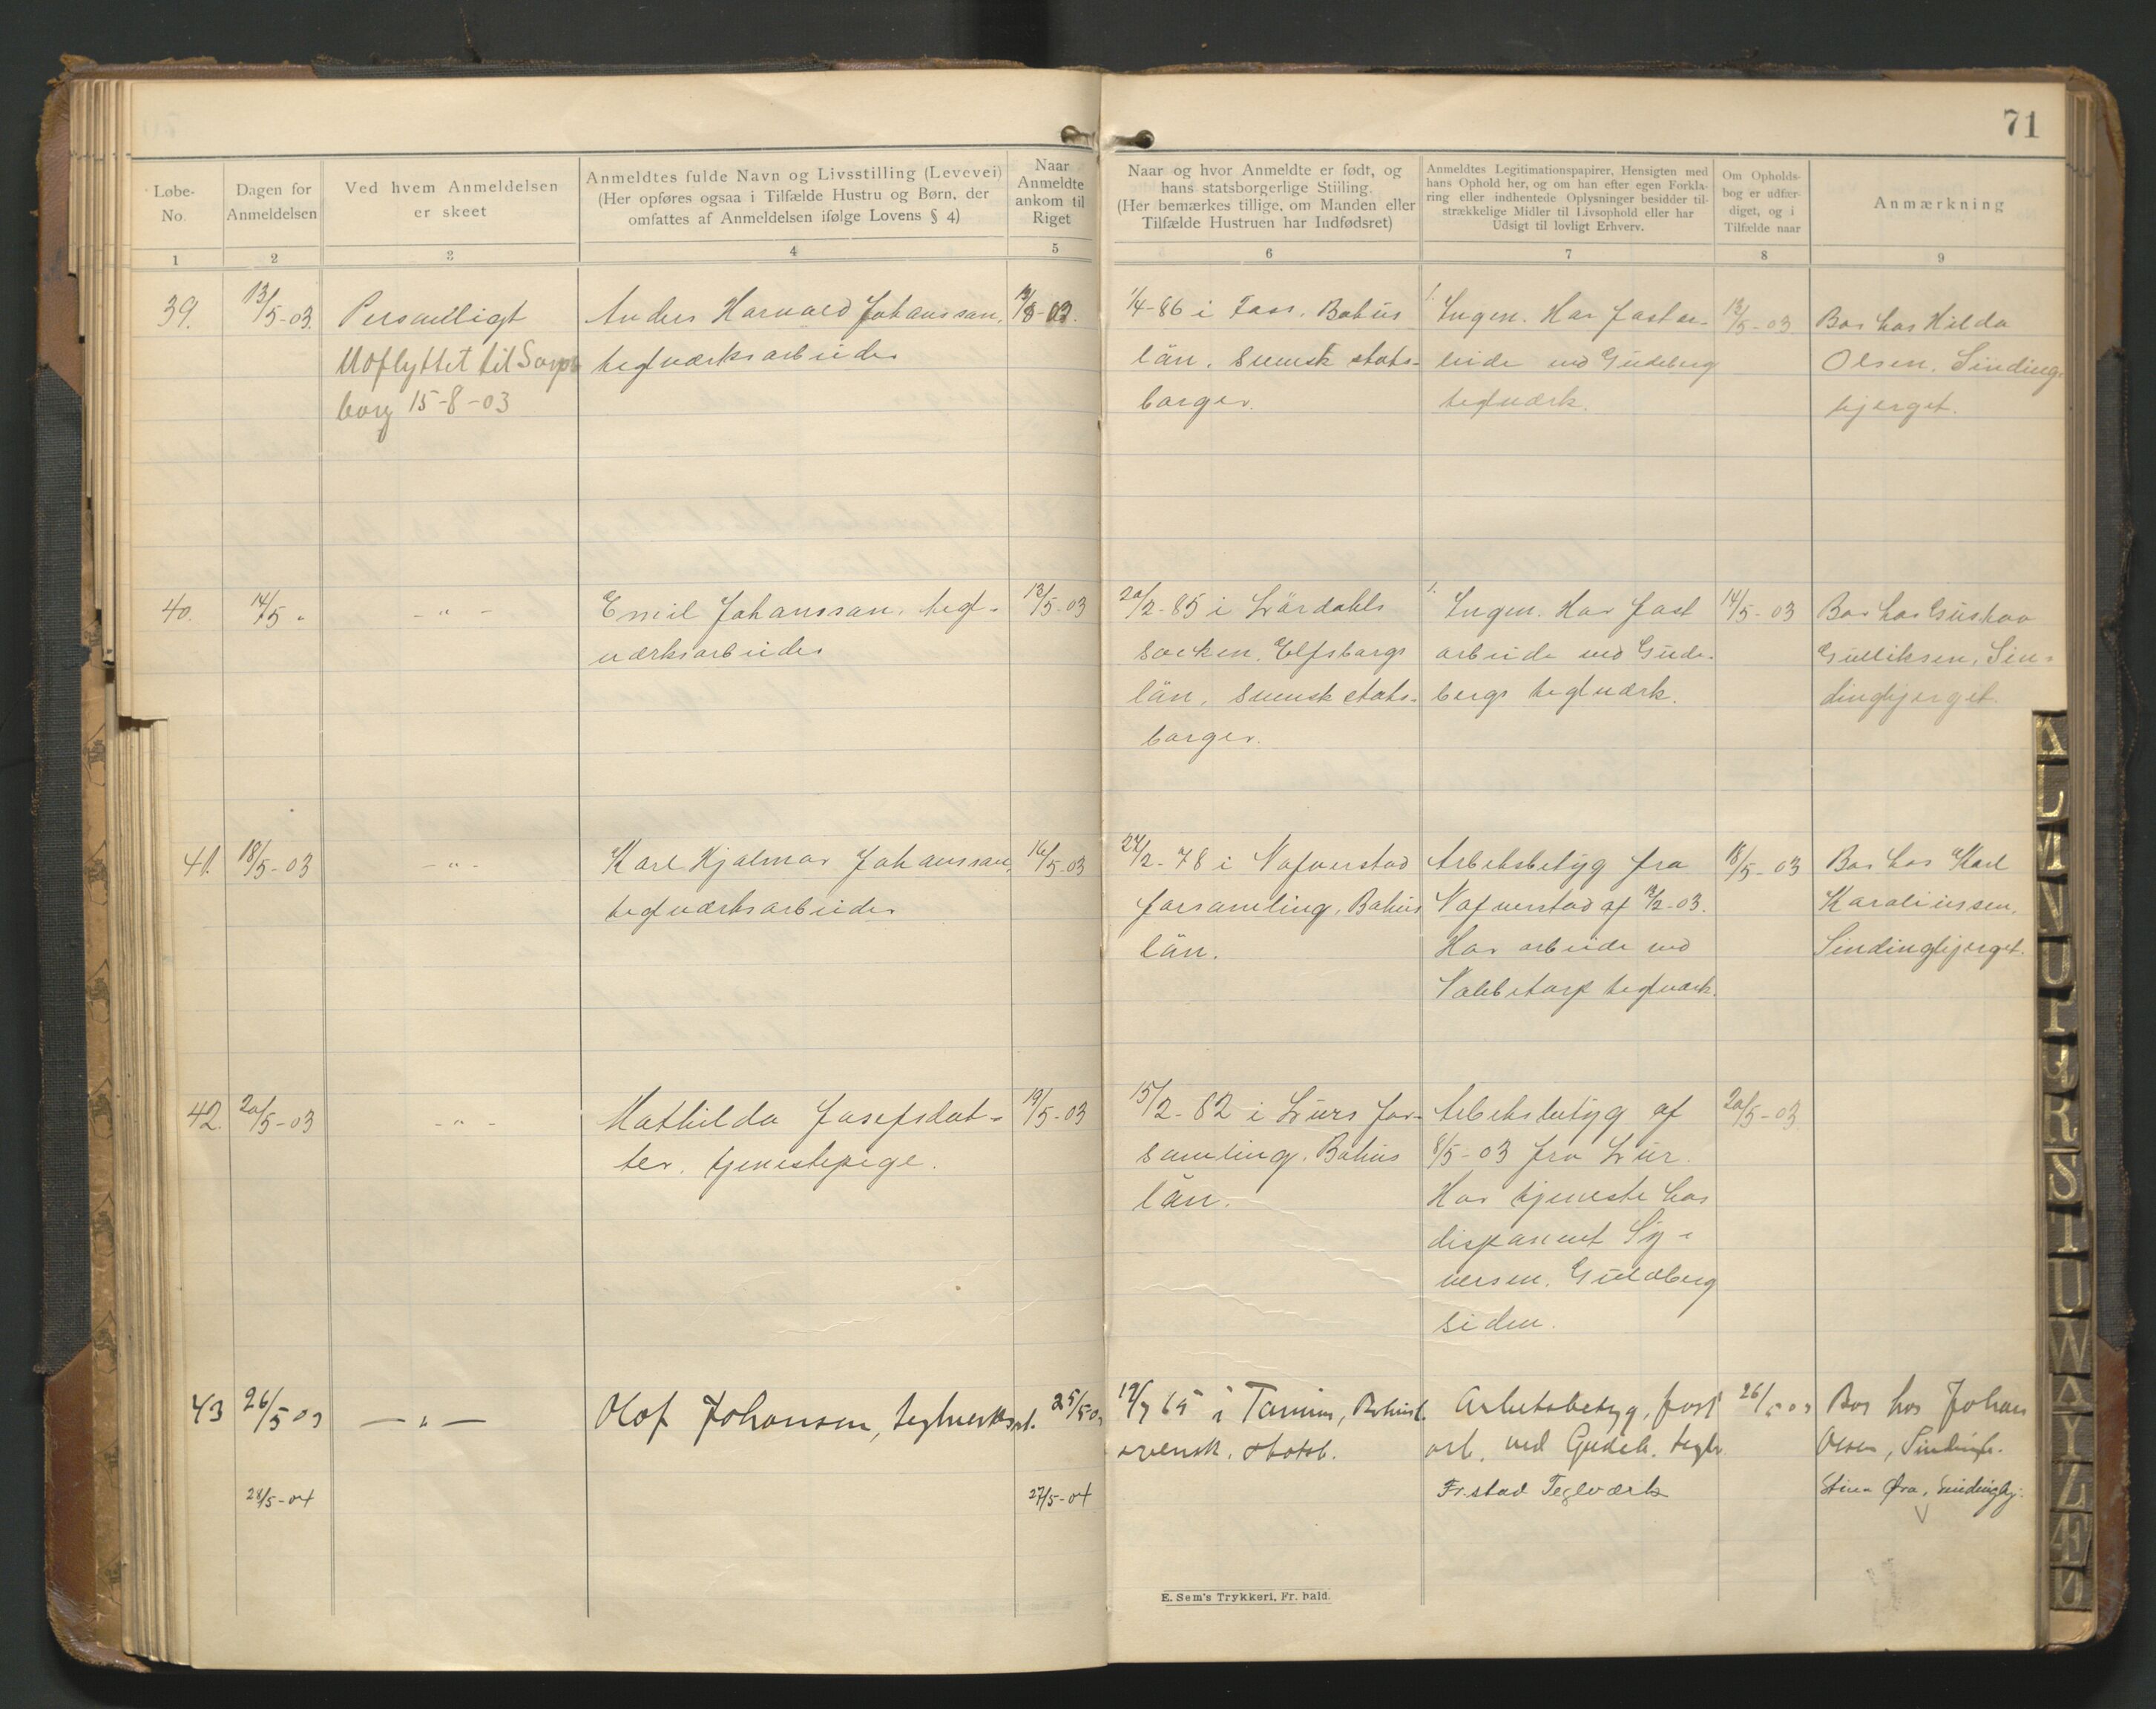 71
Løbe-
No.
Dagen for
Anmeldelsen
Ved hvem Anmeldelsen
er skeet
Anmeldtes fulde Navn og Livsstilling (Levevei)
(Her opføres ogsaa i Tilfælde Hustru og Børn, der
omfattes af Anmeldelsen ifølge Lovens § 4)
Naar
Anmeldte
ankom til
Riget
Naar og hvor Anmeldte er født, og
hans statsborgerlige Stilling.
(Her bemærkes tillige, om Manden eller
Tilfælde Hustruen har Indfødsret)
Anmeldtes Legitimationspapirer, Hensigten med
hans Ophold her, og om han efter egen Forkla-
ring eller indhentede Oplysninger besidder til-
strækkelige Midler til Livsophold eller har
Udsigt til lovligt Erhverv.
Om Opholds-
bog er udfær-
diget, og i
Tilfælde naar
Anmærkning
1 2 3 4 5 6 7 8 9
39.
13/5-03.
Personlligt
Uoflyttet til Sarps
borg 15-8-03
Anders Harvald Johanssan,
teglværksarbeider
1/4-86 i Foss, Bohus
län. Svensk stats-
borger.
Ingen. Har fast ar-
beide ved Gudeberg
teglværk.
13/5-03.
Bor hos Hilda
Olsen, Sinding-
bjerget.
40.
14/5 "
- " -
Emil Johanssan, tegl-
værksarbeider
13/5-03
20/2-85 i Lärdahls
socken, Elfsborgs
län, svensk stats-
borger.
Ingen. Har fast
arbeide ved Gude-
bergs teglværk.
14/5-03
Bor hos Gustav
Gulliksen, Sin-
dingbjerget.
41.
18/5-03
- " -
Karl Hjalmar Johanssan,
teglværksarbeider
16/5-03
22/2-78 i Nafverstad
forsamling, Bohus
län.
Arbetsbetyg fra
Nafverstad af /2-03.
Har arbeide ved
Nabbetorp teglværk.
18/5-03
Bor hos Karl
Karoliussen,
Sindingbjerget.
42.
20/5-03
- " -
Mathilda Josefsdat-
ter, tjenestepige.
19/5-03
15/2-82 i Lurs for-
samling, Bohus
län.
Arbetsbetyg af
8/5-03 fra Lur.
Har tjeneste hos
disponent Sy-
versen, Guldberg
siden.
20/5-03.
43
26/5 03
— " —
Olof Johansen, teglverksarb.
25/5 03
12/7 65 i Tanum, Bohusl.
svensk. statsb.
Arbetsbetyg, fast
arb. ved Gudeb. teglv.
26/5 03
Bor hos Johan
Olsen, Sindingb.
28/5-04
27/5-04
Fr.stad Teglværk
Stina Øra, Sindingbj.
E. Sem's Trykkeri, Fr. hald.
L
M
N
O
P
R
S
T
U
W
Y
Z
Æ
Ø